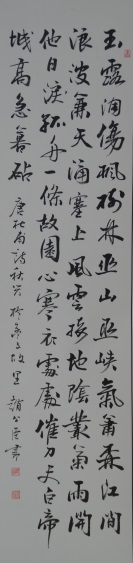 玉露凋傷楓樹林巫山巫峽氣蕭森江間
浪波兼天湧塞上風雲接地陰叢菊兩開
他日淚孤舟一條故園心寒衣處處催刀尺白帝
城高急暮砧 唐杜甫詩秋興